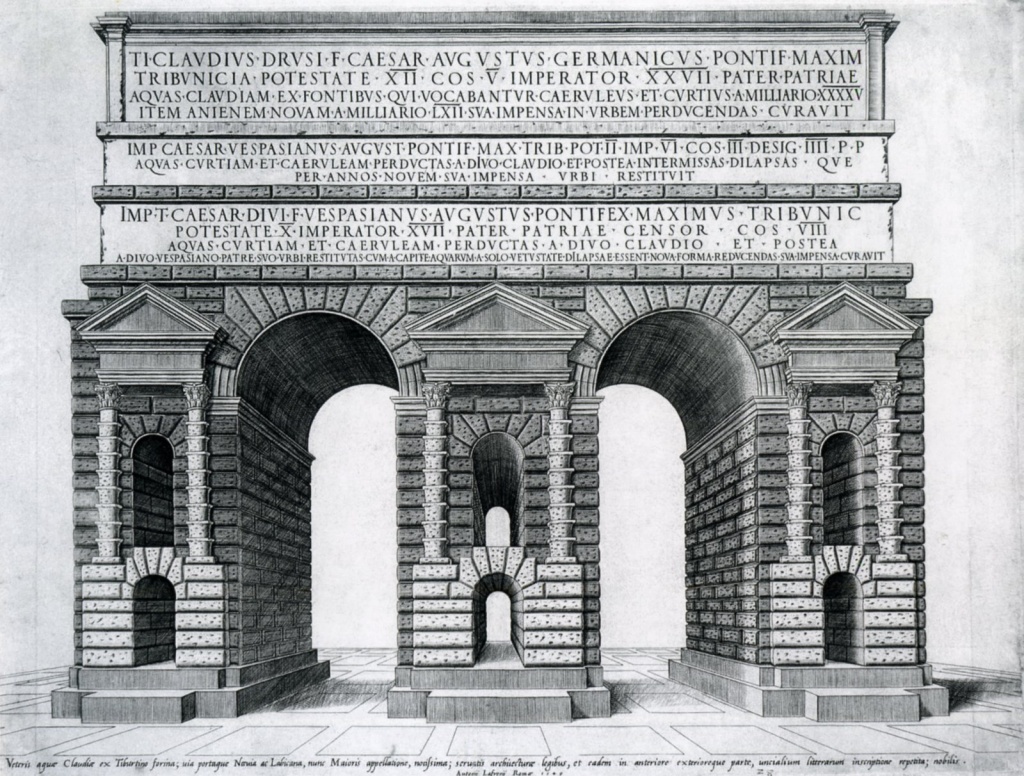 TI·CLAVDIVS·DRVSI·F·CAESAR·AVGVSTVS·GERMANICVS·PONTIF·MAXIM
TRIBVNICIA·POTESTATE·XII·COS·V·IMPERATOR·XXVII·PATER·PATRIAE
AQVAS·CLAVDIAM·EX·FONTIBVS·QVI·VOCABANTVR·CAERVLEVS·ET·CVRTIVS·A·MILLIARIO·XXXXV
ITEM·ANIENEM·NOVAM·A·MILLIARIO·LXII·SVA·IMPENSA·IN·VRBEM·PERDVCENDAS·CVRAVIT
IMP·CAESAR·VESPASIANVS·AVGVST·PONTIF·MAX·TRIB·POT·II·IMP·VI·COS·III·DESIG·IIII·P·P
AQVAS·CVRTIAM·ET·CAERVLEAM·PERDVCTAS·A·DIVO·CLAVDIO·ET·POSTEA·INTERMISSAS·DILAPSAS·QVE
PER·ANNOS·NOVEM·SVA·IMPENSA·VRBI·RESTITVIT
IMP·T·CAESAR·DIVI·F·VESPASIANVS·AVGVSTVS·PONTIFEX·MAXIMVS·TRIBVNIC
POTESTATE·X·IMPERATOR·XVII·PATER·PATRIAE·CENSOR·COS·VIII
AQVAS·CVRTIAM·ET·CAERVLEAM·PERDVCTAS·A·DIVO·CLAVDIO·ET·POSTEA
A·DIVO·VESPASIANO·PATRE·SVO·VRBI·RESTITVTAS·CVM·A·CAPITE·AQVARVM·A·SOLO·VETVSTATE·DILAPSAE·ESSENT·NOVA·FORMA·REDVCENDAS·SVA·IMPENSA·CVRAVIT
Veteris aquæ Claudiæ ex Tiburtino forina; via portaque Nævia ac Labicana, nunc Maioris appellatione, notissima; servatis architecturæ legibus, et eadem in anteriore exterioreque parte, uncialium litterarum inscriptione repetita; nobilis.
Antonii Lafrerii Romæ